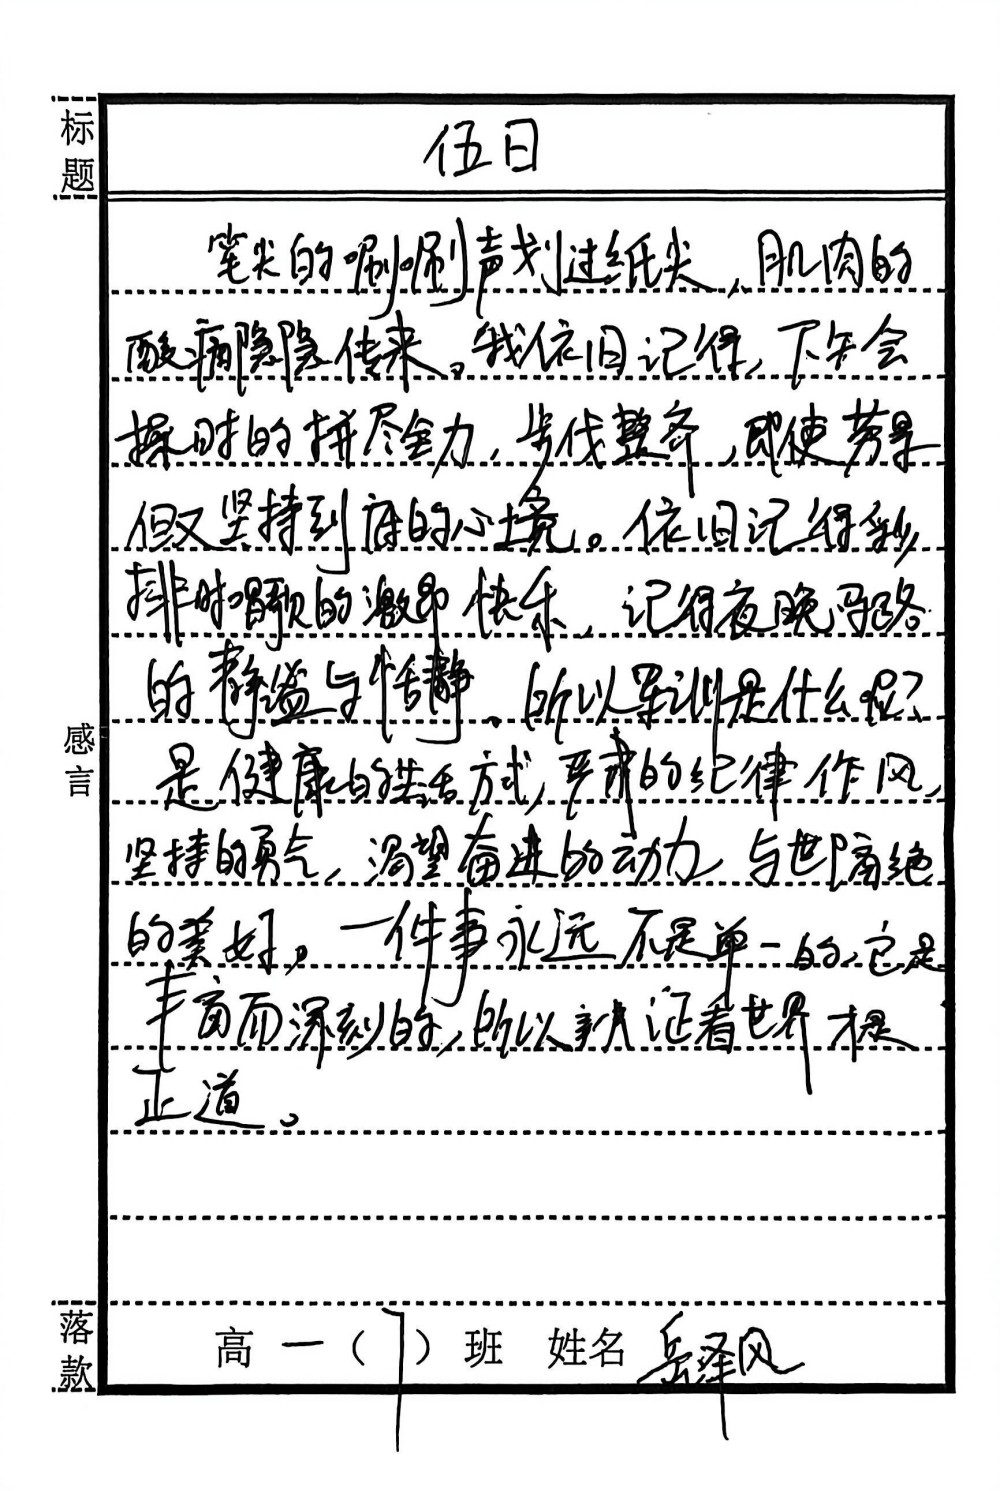 标题
伍日
笔尖的唰唰声划过纸尖，肌肉的
酸痛隐隐传来。我依旧记得，下午会
操时的拼尽全力，步伐整齐，即使劳累
但又坚持到底的心境。依旧记得彩
排时唱歌的激昂快乐，记得夜晚
的静谧与恬静。所以军训是什么呢？
感言
是健康的生活方式，严肃的纪律作风，
坚持的勇气，渴望奋进的动力，与世隔绝
的美好。一件事永远不是单一的，它是
丰富而深刻的，所以辩证看世界才是
正道。
落款
高一（7）班 姓名 岳泽风